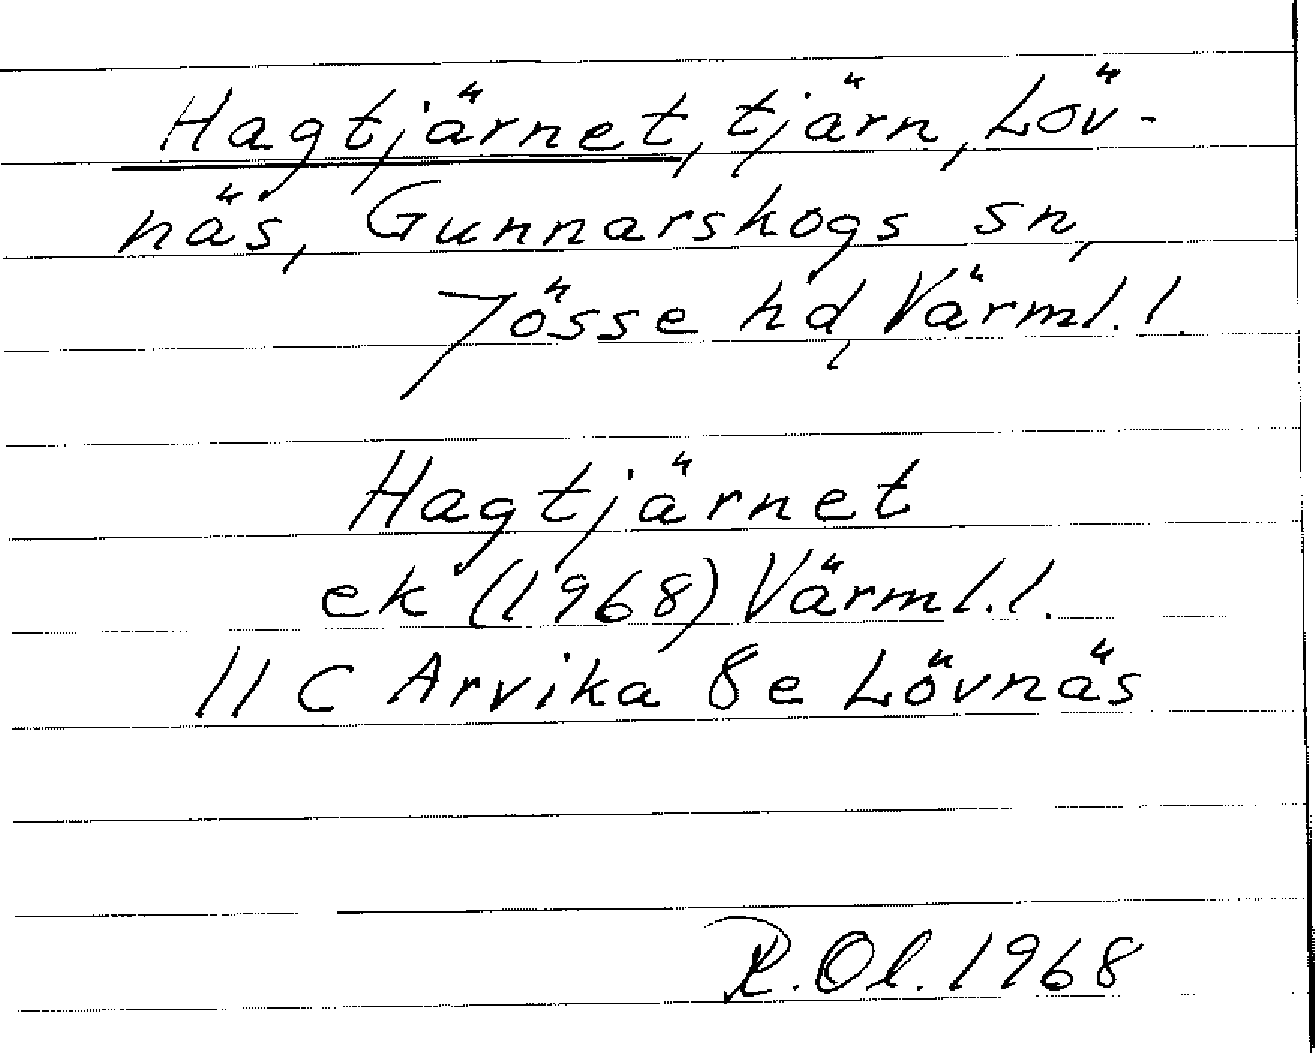 Hagtjärnet, tjärn, Löv-
näs, Gunnarskogs sn,
Jösse hd, Värml. l.
Hagtjärnet
ek (1968) Värml. l.
11 C Arvika 8e Lövnäs
R. Ol. 1968